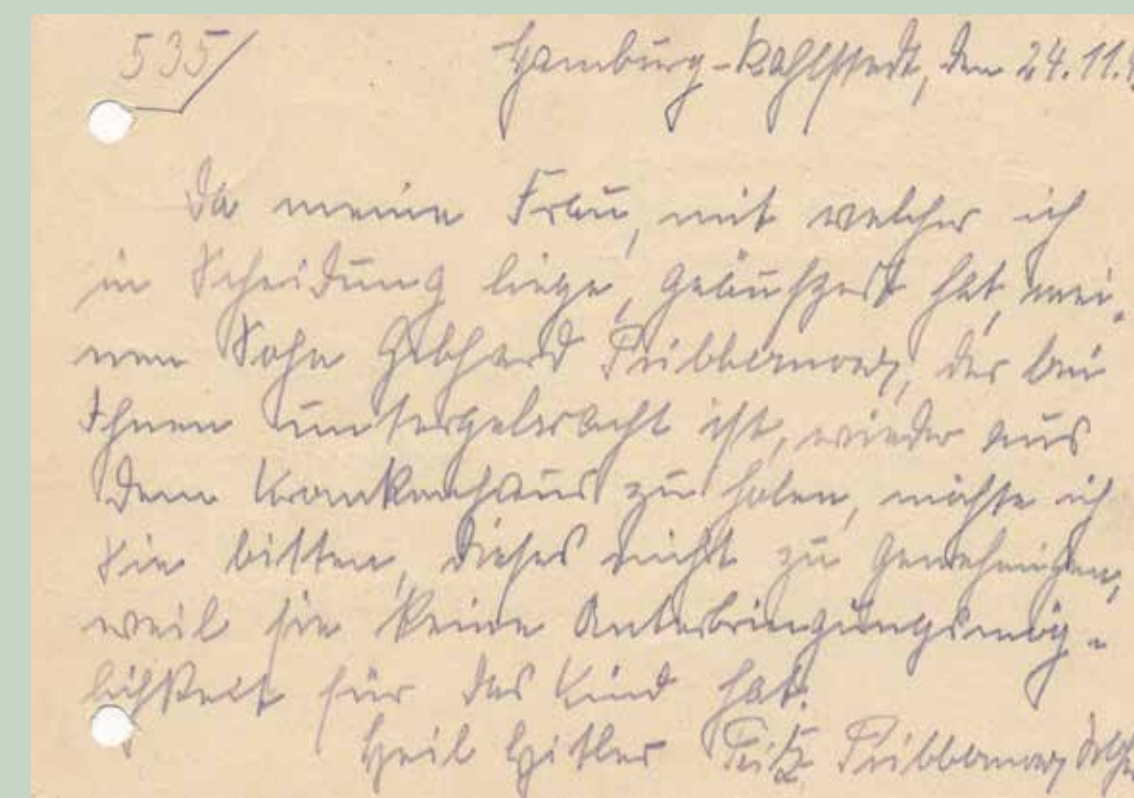 535/
Hamburg-Rahlstedt, den 24.11.4
Da meine Frau, mit welcher ich
in Scheidung liege, geäußert hat, mei-
nen Sohn Gebhard Pribbernow, der bei
Ihnen untergebracht ist, wieder aus
dem Krankenhaus zu holen, möchte ich
Sie bitten, dieses nicht zu genehmigen,
weil sie keine Unterbringungsmög-
lichkeit für das Kind hat.
Heil Hitler Fritz Pribbernow